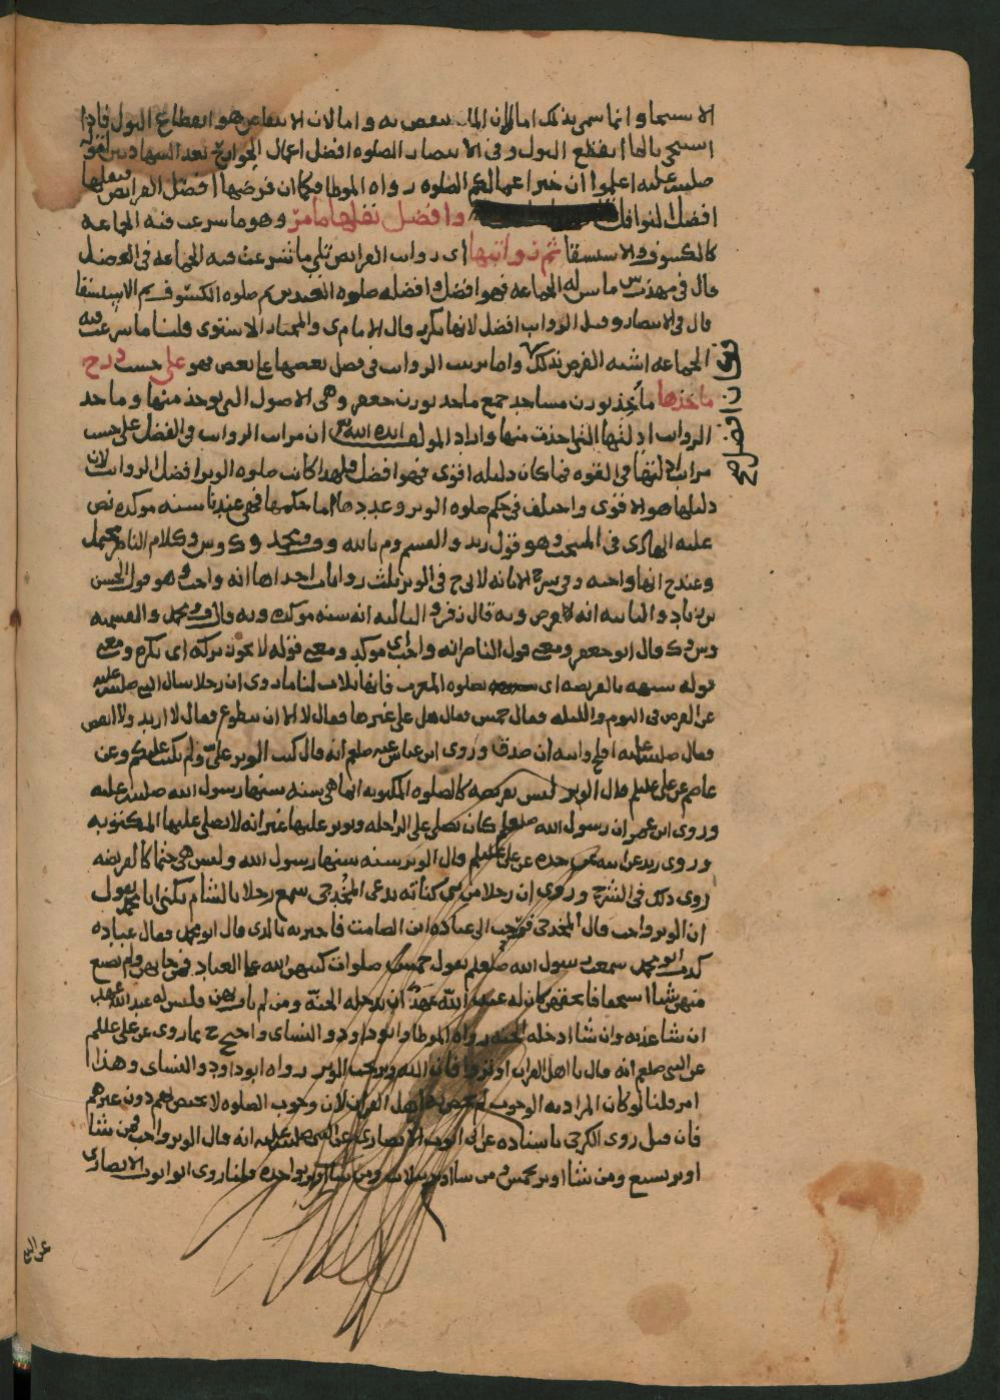 الاستنجا وانما سمي بذلك اما لان الما ينتقص به واما لان الانتقاص هو انقطاع البول فاذا
استنجى بالما انقطع البول وفي الانتصار الصلوه افضل اعمال الجوارح بعد الشهادتين لقوله
صلى الله عليه اعلموا ان خير اعمالكم الصلوه رواه الموطا فكما ان فرضها افضل الفرايض فنفلها
افضل النوافل وافضل نفلها ما مر وهو ما شرعت فيه الجماعه
كالكسوف والاستسقا ثم رواتبها اي رواتب الفرايض تلي ما شرعت فيه الجماعه في الفضل
قال في مهذب ش ما سن له الجماعه فهو افضل وافضله صلوه العيدين ثم صلوه الكسوف ثم الاستسقا
قال في الانتصار وقيل الرواتب افضل لانها تكرر قال الامام ى والمختار الاستوى قلنا ما شرعت فيه
الجماعه اشبه الفرض بذلك واما ترتيب الرواتب في فضل بعضها على بعض فهو على حسب درج
وكان افضل صح
ماخذها ماخذ بوزن مساجد جمع ماخذ بوزن جعفر وهي الاصول التي يوخذ منها وماخذ
الرواتب ادلتها التي اخذت منها واراد المولف ايده الله تع ان مراتب الرواتب في الفضل على حسب
مراتب ادلتها في القوه فما كان دليله اقوى فهو افضل ولهذا كانت صلوه الوتر افضل الرواتب لان
دليلها هو الاقوى واختلف في حكم صلوه الوتر وعددها اما حكمها فهي عندنا سنه موكده نص
عليه الهادي في المنتخب وهو قول زيد والقسم وم بالله وف ومحمد وك وش وكلام الناصر محتمل
وعند ح انها واجبه وفي شرح الابانه لابي ح في الوتر ثلث روايات احداها انه واجب وهو قول الحسن
بن زياد والثانيه انه فرض وبه قال زفر والثالثه انه سنه موكده وبه قال ف ومحمد والقسميه
وش وك قال ابو جعفر ومعنى قول الناصر انه واجب اي موكد ومعنى قوله لا يجوز تركه اي يكره ومعنى
قوله شبهه بالفريضه اي بصلوه المغرب فانها ثلاث لنا ما روي ان رجلا سال النبي صلى الله عليه
عن الفرض في اليوم والليله فقال خمس فقال هل علي غيرها فقال لا الا ان تطوع فقال لا ازيد ولا انقص
فقال صلى الله عليه افلح والله ان صدق وروى ابن عباس عنه صلعم انه قال كتب الوتر علي ولم يكتب عليكم وعن
عاصم عن علي عليلم قال الوتر ليس بفريضه كالصلوه المكتوبه انما هي سنه سنها رسول الله صلى الله عليه
وروى ابن عمر ان رسول الله صلعم كان يصلي على الراحله ويوتر عليها غير انه لا يصلي عليها المكتوبه
وروى زيد عن ابيه عن جده عن علي عليلم قال الوتر سنه سنها رسول الله وليس هي حتما كالفريضه
روى ذلك في الشرح وروي ان رجلا من بني كنانه يدعى المخدجي سمع رجلا بالشام يكنى ابا محمد يقول
ان الوتر واجب قال المخدجي فرحت الى عباده ابن الصامت فاخبرته بالذي قال ابو محمد فقال عباده
كذب ابو محمد سمعت رسول الله صلعم يقول خمس صلوات كتبهن الله على العباد فمن جا بهن ولم يضيع
منهن شيا استخفافا بحقهن كان له عند الله عهدا ان يدخله الجنه ومن لم يات بهن فليس له عند الله عهد
ان شا عذبه وان شا ادخله الجنه رواه الموطا وابو داود والنساي واحتج ح بما روي عن علي عليلم
عن النبي صلعم انه قال يا اهل القران اوتروا فان الله وتر يحب الوتر رواه ابو داود والنساي وهذا
امر قلنا لو كان المراد به الوجوب لم يختص باهل القران لان وجوب الصلوه لا يختص بهم دون غيرهم
فان قيل روى الكرخي باسناده عن ابي ايوب الانصاري عن النبي صلى الله عليه انه قال الوتر واجب فمن شا
اوتر بسبع ومن شا اوتر بخمس ومن شا اوتر بثلاث ومن شا اوتر بواحده قلنا روى ابو ايوب الانصاري
عن النبي